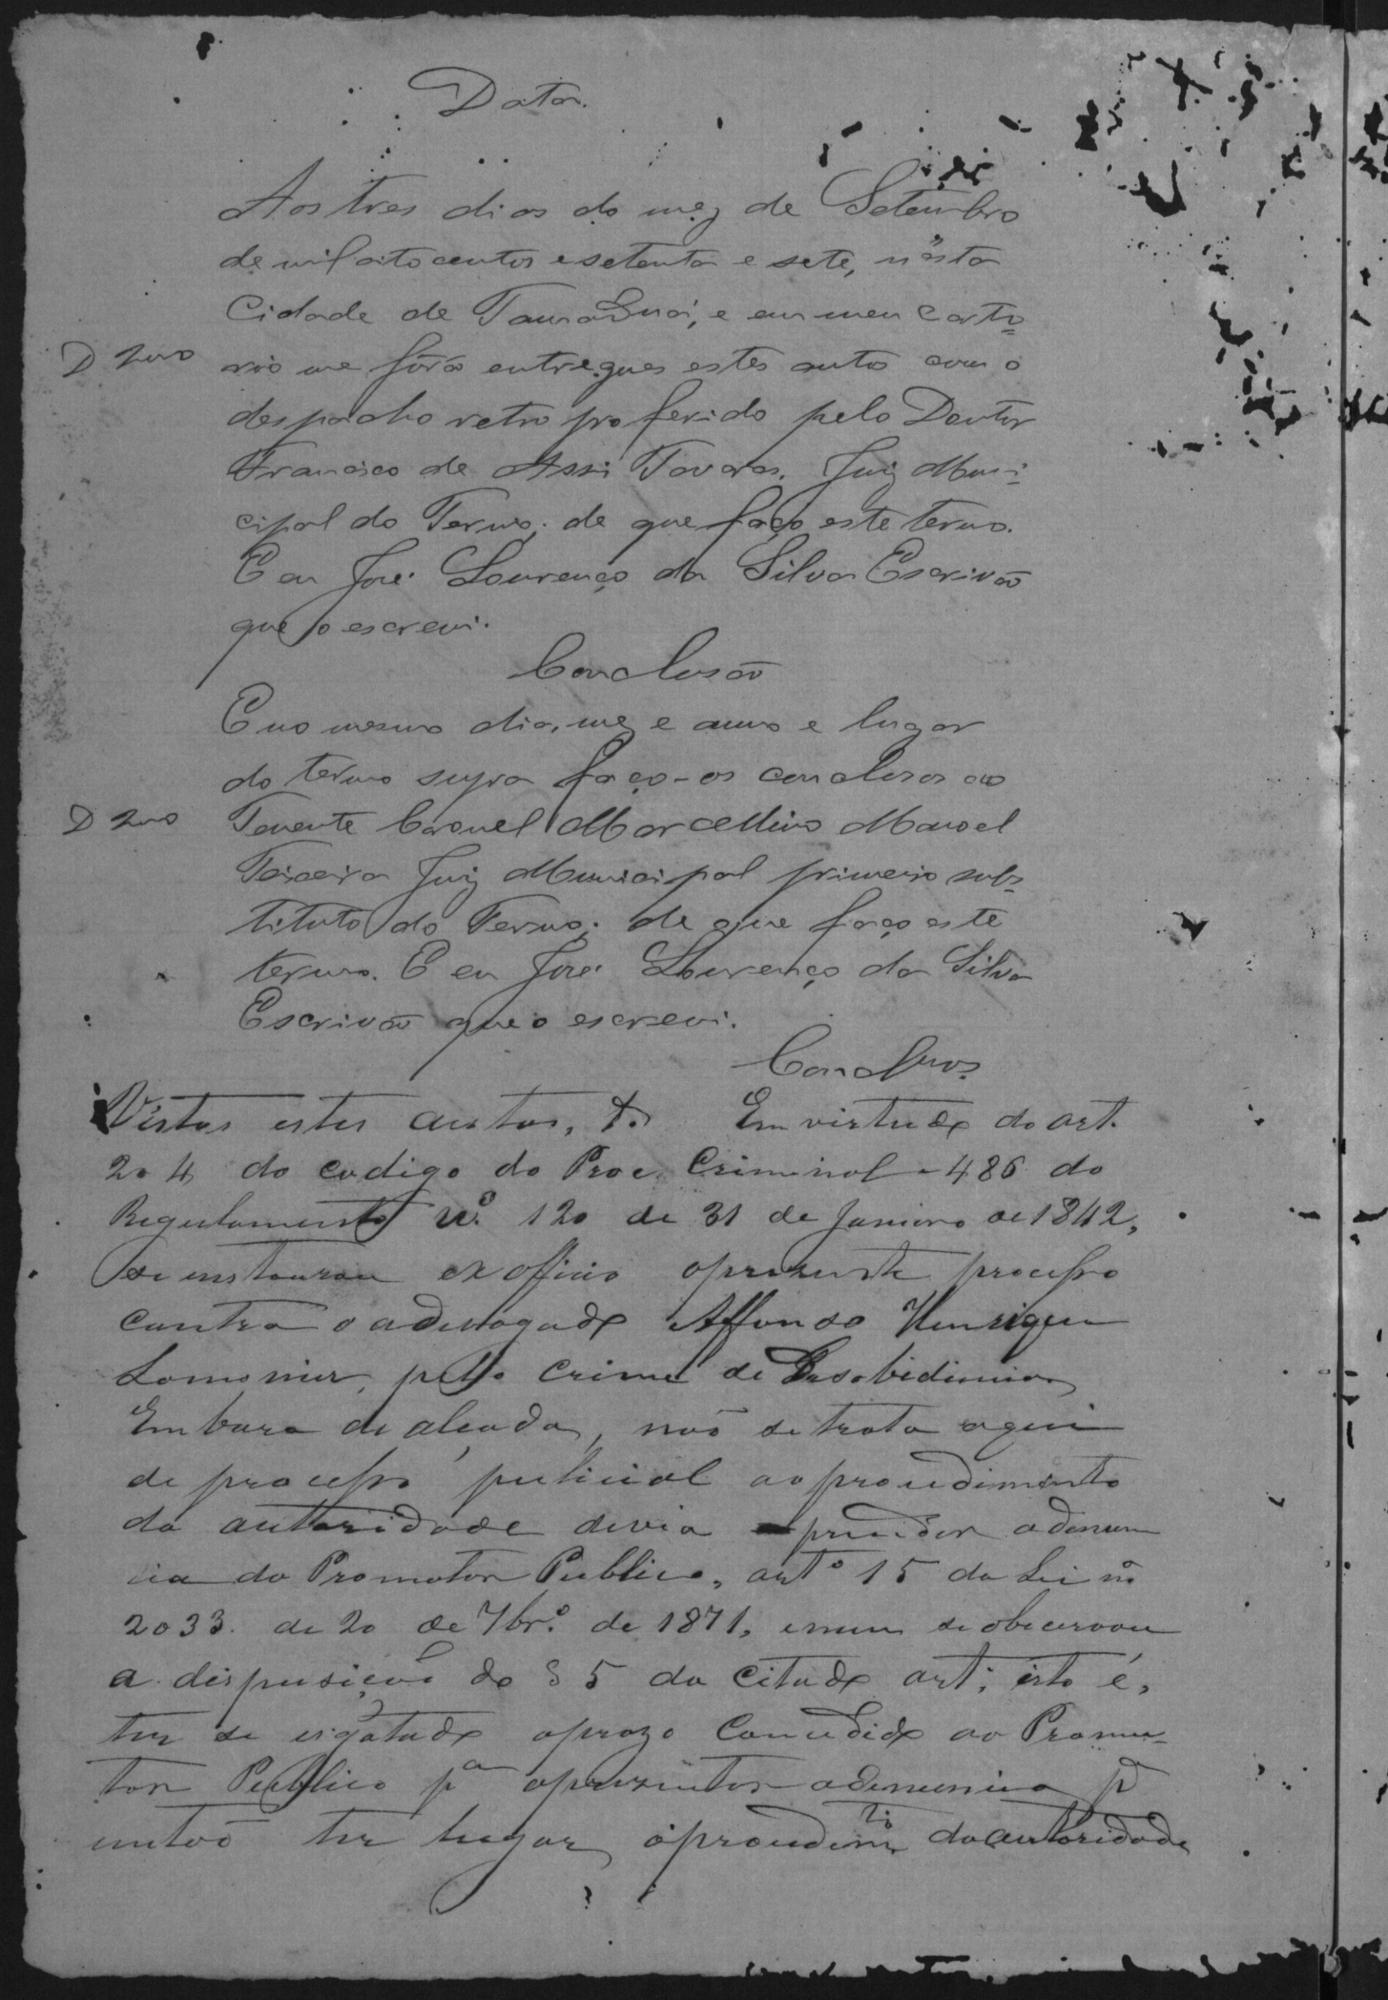 Data.
Aos tres dias do mez de Setembro
de mil oito centos e setenta e sete, n'esta
Cidade de Taubaté, e em meu carto-
rio me forão entregues estes auto com o
despacho retro proferido pelo Doutor
Francisco de Assi Tavares, Juiz Muni-
cipal do Termo; de que faço este termo.
E eu José Lourenço da Silva Escrivão
que o escrevi.
Conclusão
E no mesmo dia, mez e anno e lugar
do termo supra faço-os conclusos ao
Tenente Coronel Marcellino Manoel
Teixeira Juiz Municipal primeiro subs-
tituto do Termo; de que faço este
termo. E eu José Lourenço da Silva
Escrivão que o escrevi.
Conclusos
Vistos estes autos, &. Em virtude do art.
204 do codigo do Proc. Criminal e 486 do
Regulamento nº 120 de 31 de Janeiro de 1842,
se instaurou ex officio o presente processo
contra o advogado Affonso Henrique
pelo crime de Desobidiencia
Embora de alçada, não se trata aqui
de processo policial ao procedimento
da autoridade devia preceder a denun
cia do Promotor Publico, artº 15 da Lei nº
2033 de 20 de 7brº de 1871, e nem se observou
a disposição do § 5 do citado art; isto é,
ter se esgotado o prazo concedido ao Promo-
tor Publico pª apresentar a denuncia pª
então ter lugar o procedimtº da autoridade